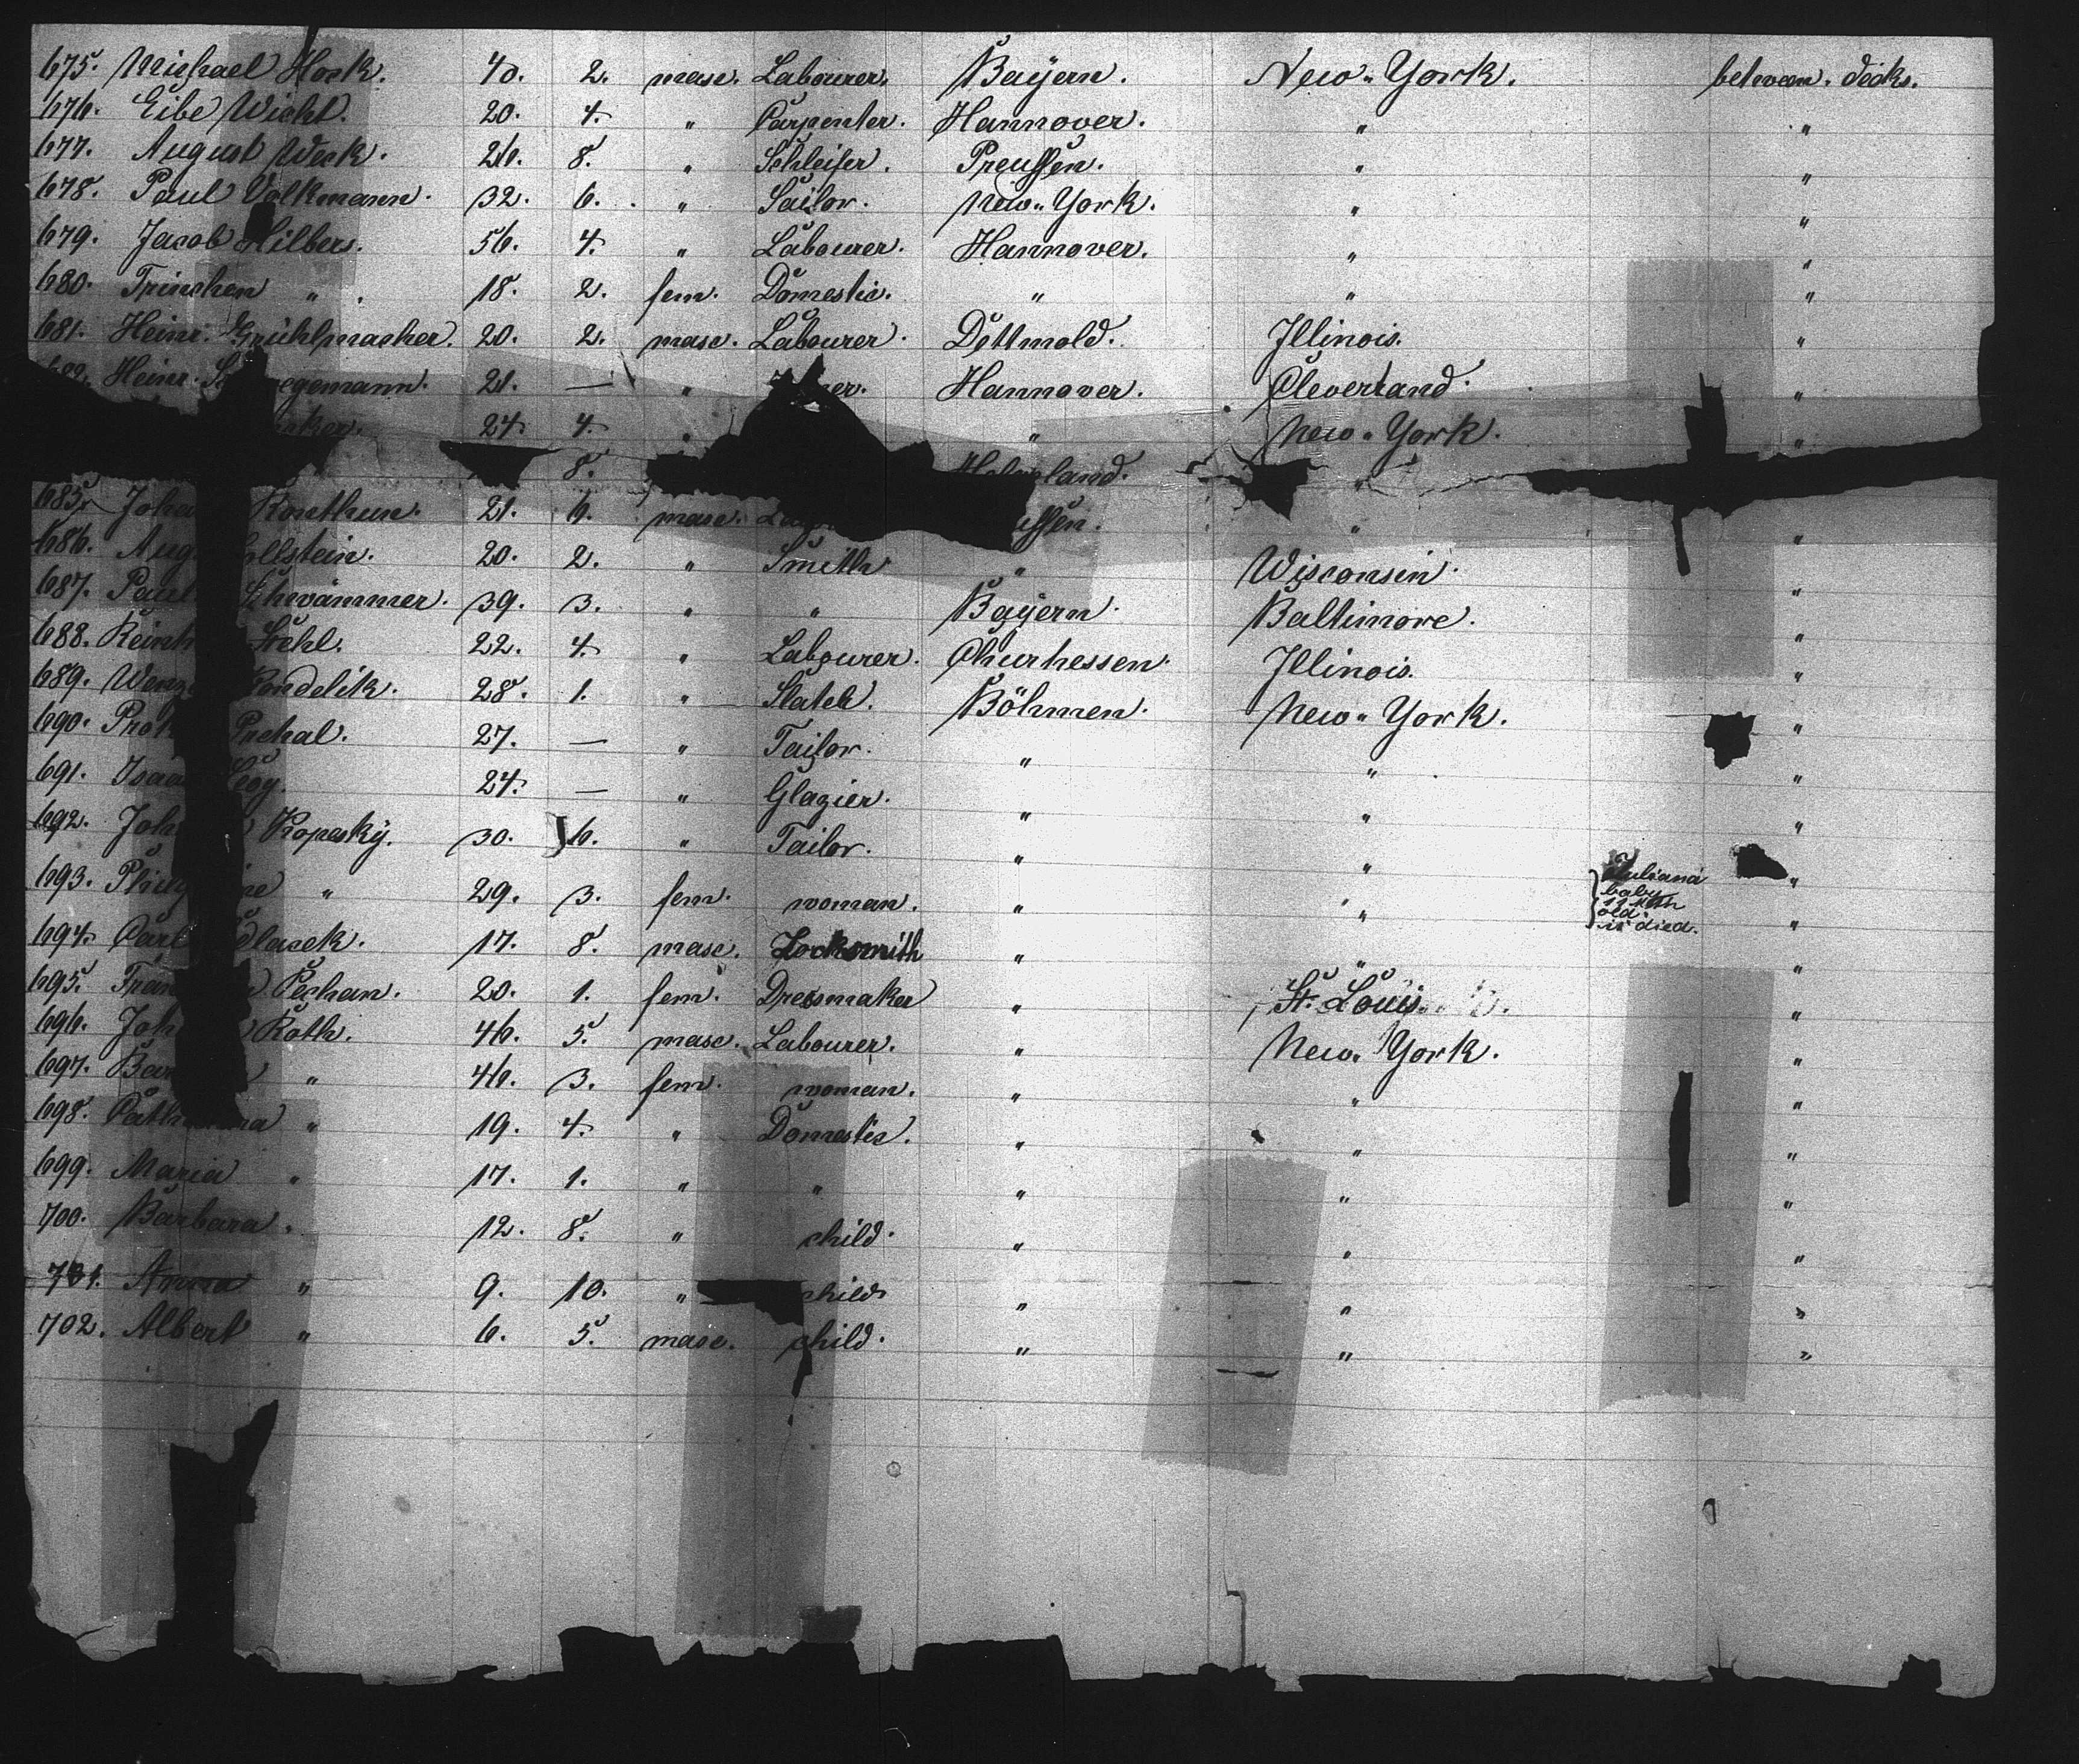 675. Michael Hock. 40. 2. masc. Labourer. Bayern. New-York. between decks.
676. Eibe Wicht. 20. 4. " Carpenter. Hannover. " "
677. August Weck. 26. 8. " Schleifer. Preussen. " "
678. Paul Volkmann. 32. 6. " Sailor. New-York. " "
679. Jacob Hilbers. 56. 4. " Labourer. Hannover. " "
680. Trinchen " 18. 2. fem. Domestic. " " "
681. Heinr. Grühlmacher. 20. 2. masc. Labourer. Dettmold. Illinois. "
682. Heinr. 21. — " Hannover. Cleverland. "
24. 4. " " New-York. "
8. "
685. 21. 6. masc. " "
686. 20. 2. " Smith " Wisconsin. "
687. Paul Schwämmer. 39. 3. " " Bayern. Baltimore. "
688. Stehl. 22. 4. " Labourer. Churhessen. Illinois. "
689. Pondelik. 28. 1. " Böhmen. New-York. "
690. 27. — " Tailor. " " "
691. 24. — " Glazier. " " "
692. Kopesky. 30. 6. " Tailor. " " "
693. " 29. 3. fem. woman. " " Juliana baby 12 Mth old is died. "
694. Carl 17. 8. masc. Locksmith " " "
695. Pechan. 20. 1. fem. Dressmaker " St. Louis. "
696. Roth. 46. 5. masc. Labourer. " New-York. "
697. " 46. 3. fem. woman. " " "
698. " 19. 4. " Domestic. " " "
699. Maria " 17. 1. " " " " "
700. Barbara " 12. 8. " child. " " "
701. Anna " 9. 10. " child " " "
702. Albert " 6. 5. masc. child. " " "